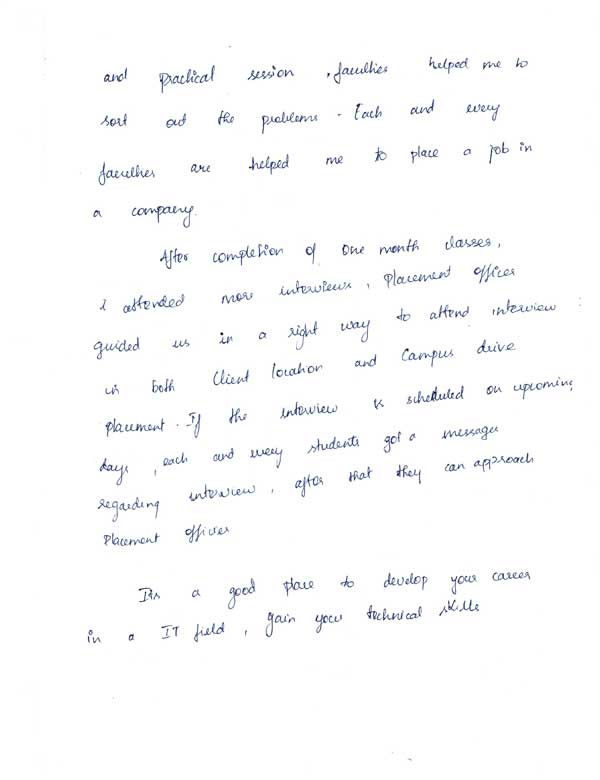 and practical session, faculties helped me to
sort out the problems. Each and every
faculties are helped me to place a job in
a company.
After completion of one month classes,
I attended more interviews, Placement officer
guided us in a right way to attend interview
in both Client location and Campus drive
placement. If the interview is scheduled on upcoming
days, each and every students got a message
regarding interview, after that they can approach
Placement officer
Its a good place to develop your career
in a IT field, gain your technical skills